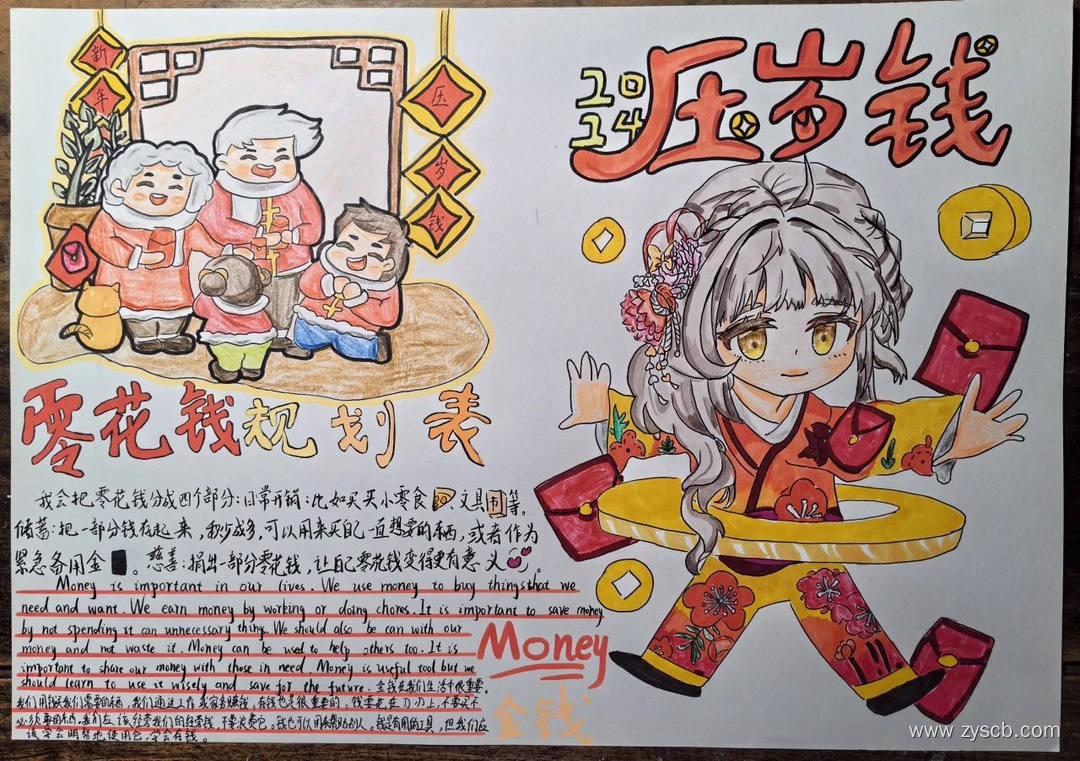 新年
压岁钱
2014
压岁钱
零花钱规划表
我会把零花钱分成四个部分:日常开销:比如买买小零食、文具书等。
储蓄:把一部分钱存起来,积少成多,可以用来买自己一直想要的东西,或者作为
紧急备用金。慈善:捐出一部分零花钱,让自己零花钱变得更有意义。
Money is important in our lives. We use money to buy things that we
need and want. We earn money by working or doing chores. It is important to save money
by not spending it can unnecessary things. We should also be can with our
money and not waste it. Money can be used to help others too. It is
important to share our money with those in need. Money is useful tool but we
should learn to use it wisely and save for the future. 金钱在我们生活中很重要。
我们用钱买我们需要的东西。我们通过工作或家务赚钱。存钱也是很重要的。钱要花在刀刃上,不要买不
必须要的东西。我们应该经管我们的钱,不要浪费它。钱也可以用来帮助别人。钱是有用的工具,但我们应
该学会明智地使用它,学会存钱。
Money
金钱
www.zyscb.com